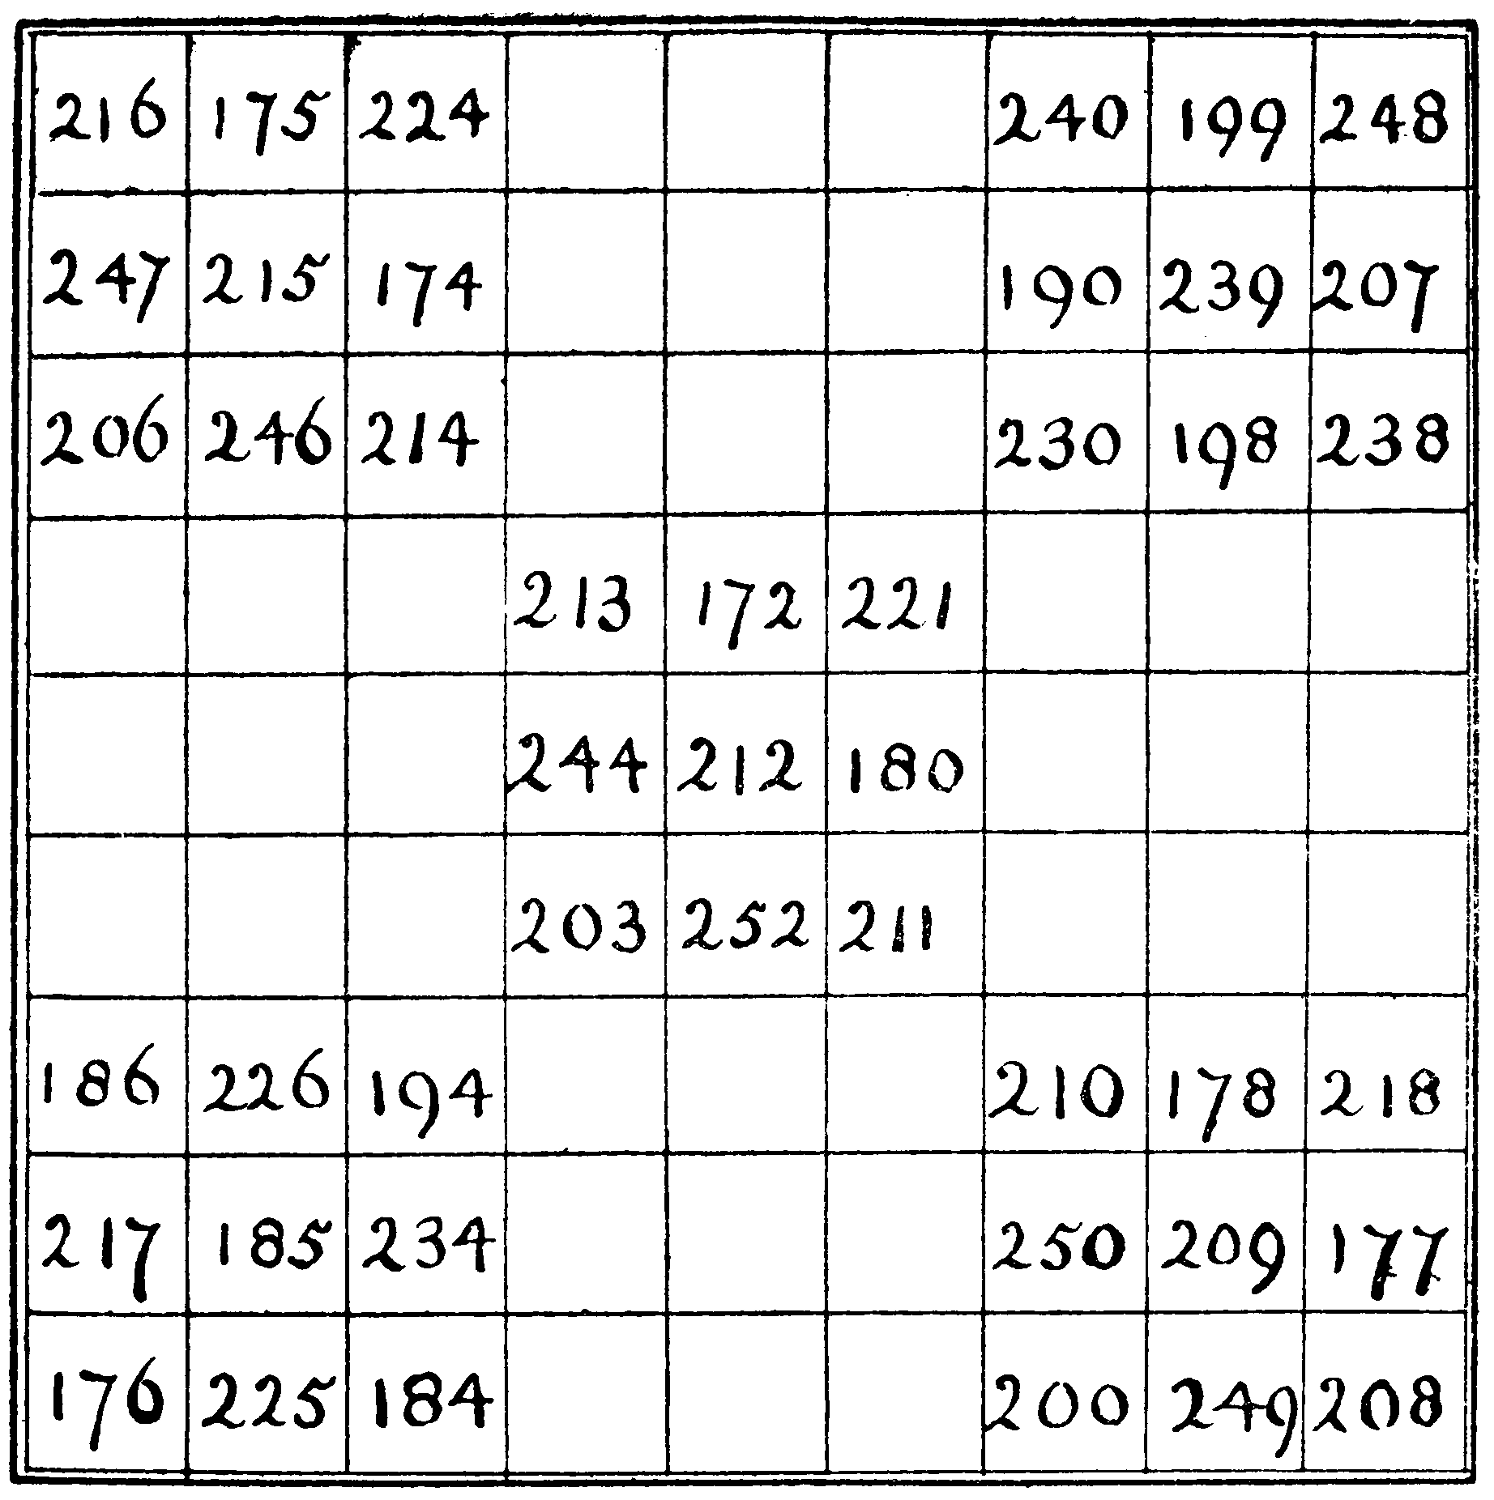 216 175 224 240 199 248
247 215 174 190 239 207
206 246 214 230 198 238
213 172 221
244 212 180
203 252 211
186 226 194 210 178 218
217 185 234 250 209 177
176 225 184 200 249 208